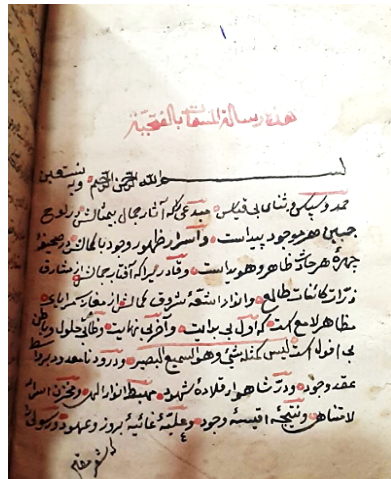 ١
هذه رسالة المسمات بالفتحیة
بسم الله الرحمن الرحیم وبه نستعین
حمد و سپاس و ثنای بی قیاس مبدعی که آثار جمال بیمثالش در لوح
جبین هر موجود پیداست و اسرار ظهور وجود با کمالش در صحیفۀ
چهرۀ هر حادث ظاهر و هویداست و قادریرا که آفتاب جمالش از مشارق
ذرات کائنات طالع و انوار اشعۀ شوق کمالش از مغارب مرایای
مظاهر لامع است که اول بی بدایت و آخر بی نهایت و طالع بی حلول و باطن
بی افول است لیس کمثله شیء وهو السمیع البصیر و درود نامعدود بر واسطۀ
عقد وجود و درّ شاهوار قلادۀ شهود مهبط انوار الهی و مخزن اسرار
لا متناهی و نتیجۀ اقیسۀ وجود و علت غائیۀ بروز و عهود و رسولی
که شعر مقام